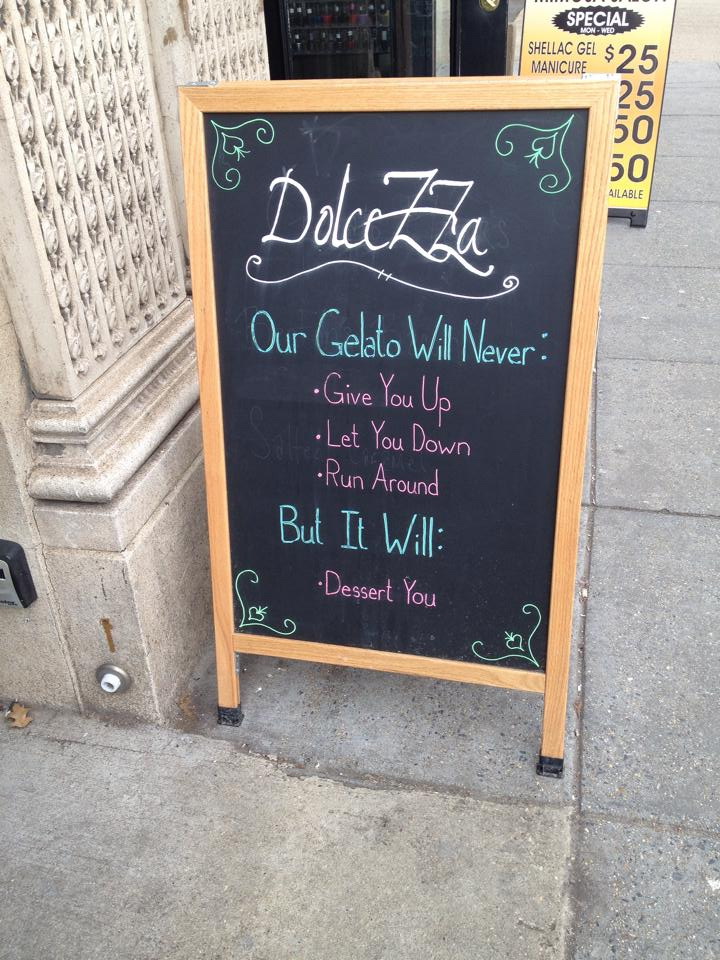 DolceZZa
Our Gelato Will Never:
• Give You Up
• Let You Down
• Run Around
But It Will:
• Dessert You
SPECIAL
MON - WED
SHELLAC GEL
MANICURE
$25
25
50
50